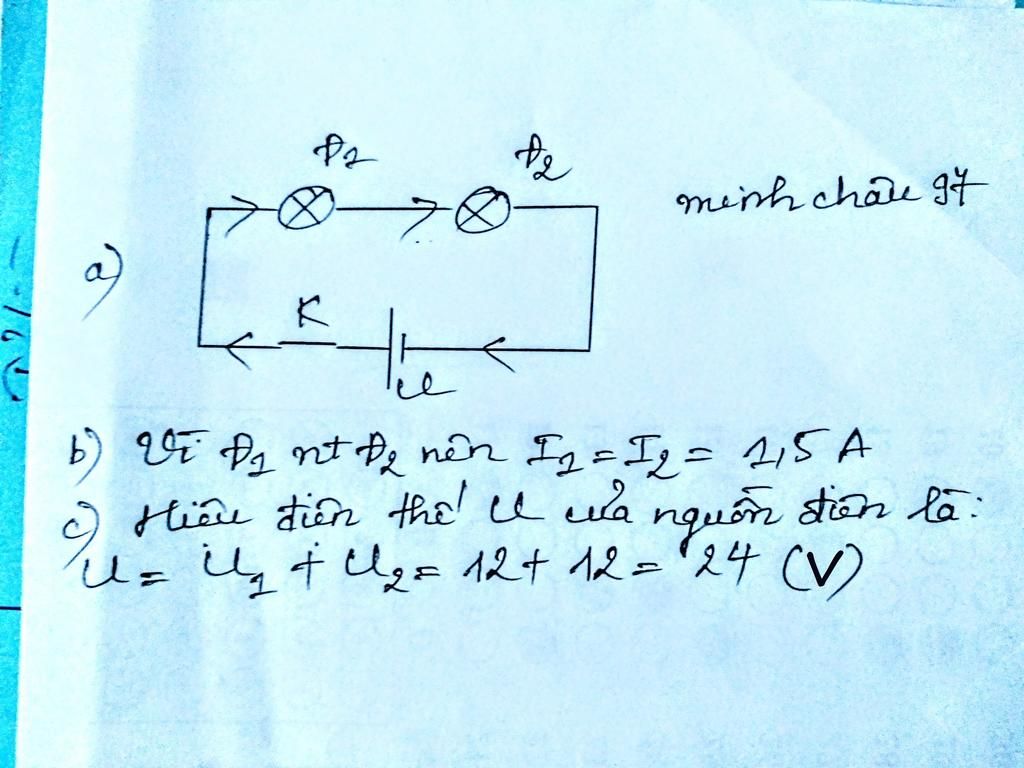 Đ1 Đ2
minhchâu 97
a)
K
U
b) Vì Đ1 nt Đ2 nên I1 = I2 = 1,5 A
c) Hiệu điện thế U của nguồn điện là:
U = U1 + U2 = 12 + 12 = 24 (V)